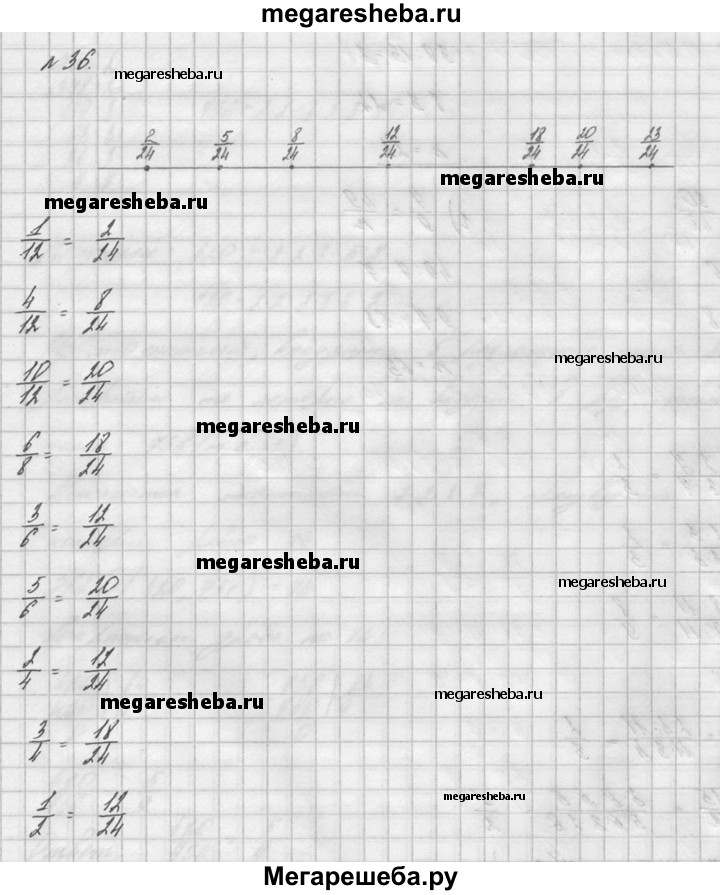 megaresheba.ru
№ 36.
megaresheba.ru
2/24 5/24 8/24 12/24 18/24 20/24 23/24
megaresheba.ru
megaresheba.ru
1/12 = 2/24
4/12 = 8/24
megaresheba.ru
10/12 = 20/24
megaresheba.ru
6/8 = 18/24
3/6 = 12/24
megaresheba.ru
megaresheba.ru
5/6 = 20/24
2/4 = 12/24
megaresheba.ru
megaresheba.ru
3/4 = 18/24
megaresheba.ru
1/2 = 12/24
Мегарешеба.ру